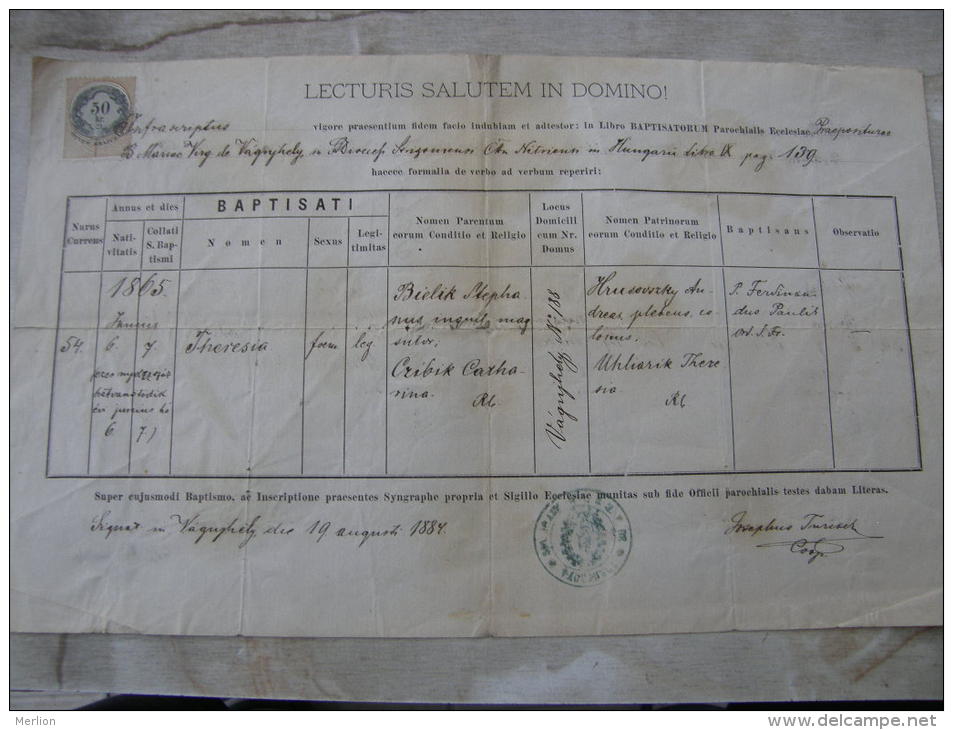 LECTURIS SALUTEM IN DOMINO!
50
kr
Infrascriptus vigore praesentium fidem facio indubiam et adtestor: in Libro BAPTISATORUM Parochialis Ecclesiae Praepositurae
B. Mariae Virg. de Vágujhely, in Hungaria Libro IX pag. 139
haecce formalia de verbo ad verbum reperiri:
Nurus Currens
Annus et dies
Nati-vitatis
Collati S. Bap-tismi
BAPTISATI
Nomen
Sexus
Legi-timitas
Nomen Parentum
eorum Conditio et Religio
Locus
Domicili
cum Nr.
Domus
Nomen Patrinorum
eorum Conditio et Religio
Baptisans
Observatio
1865.
54.
6.
7.
Theresia
foem.
leg.
Bielik Stepha-
nus, inquil. mag.
sutor,
Cribik Catha-
rina.
RC
Vágujhely No 188
Hrusovszky An-
dreas, plebeus, co-
lonus,
Uhlarik There
sia
RC
P. Ferdinan-
dus Paulis
Ord. S. Fr.
6.
7.)
Super cujusmodi Baptismo, ac Inscriptione praesentes Syngraphe propria et Sigillo Ecclesiae munitas sub fide Officii parochialis testes dabam Literas.
Signat. in Vágujhely, die 19 augusti 1884.
Josephus
Coop.
Merlion
www.delcampe.net